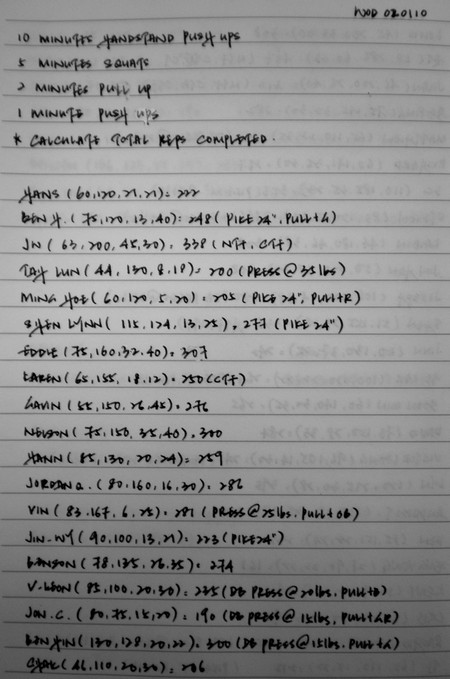 WOD 020110
10 MINUTES HANDSTAND PUSH UPS
5 MINUTES SQUATS
2 MINUTES PULL UP
1 MINUTE PUSH UPS
* CALCULATE TOTAL REPS COMPLETED.
HANS (60,120,21,21): 222
BEN H. (75,120,13,40): 248 (PIKE 24", PULL+G)
JN (63,200,45,30), 338 (NFT, CFT)
TAY LUN (44, 130, 8, 18), 200 (PRESS @ 35lbs)
MING HOE (60,120,5,20): 205 (PIKE 24", PULL+R)
SHEN LYNN (115,124,13,25), 277 (PIKE 24")
EDDIE (75,160,32,40), 307
KAREN (65,155,18,12), 250 (CFT)
GAVIN (55,150,26,45), 276
NELSON (75,150,35,40), 300
HANN (85,130,20,24): 259
JORDAN Q. (80,160,16,30): 286
VIN (83,167,6,25): 281 (PRESS @ 25lbs. PULL+OB)
JIN-NY (90,100,13,21): 223 (PIKE 24")
BENSON (78,135,26,35), 274
V-LEON (85,100,20,30): 235 (DB PRESS @ 20lbs, PULL+B)
JON.C. (80,75,15,20): 190 (DB PRESS @ 15lbs, PULL+GR)
(130,128,20,22), 300 (DB PRESS @ 15lbs. PULL+G)
(46,110,20,30), 206